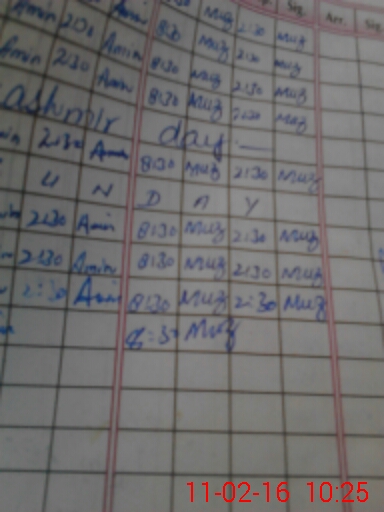 Sig. Arr. Sig.
Amin 2:30 Amin 8:30 Muz 2:30 Muz
Amin 2:30 Amin 8:30 Muz 2:30 Muz
8:30 Muz 2:30 Muz
ashmir day
2:30 Amin 8:30 Muz 2:30 Muz
U N D A Y
2:30 Amin 8:30 Muz 2:30 Muz
2:30 Amin 8:30 Muz 2:30 Muz
2:30 Amin 8:30 Muz 2:30 Muz
8:30 Muz
11-02-16 10:25